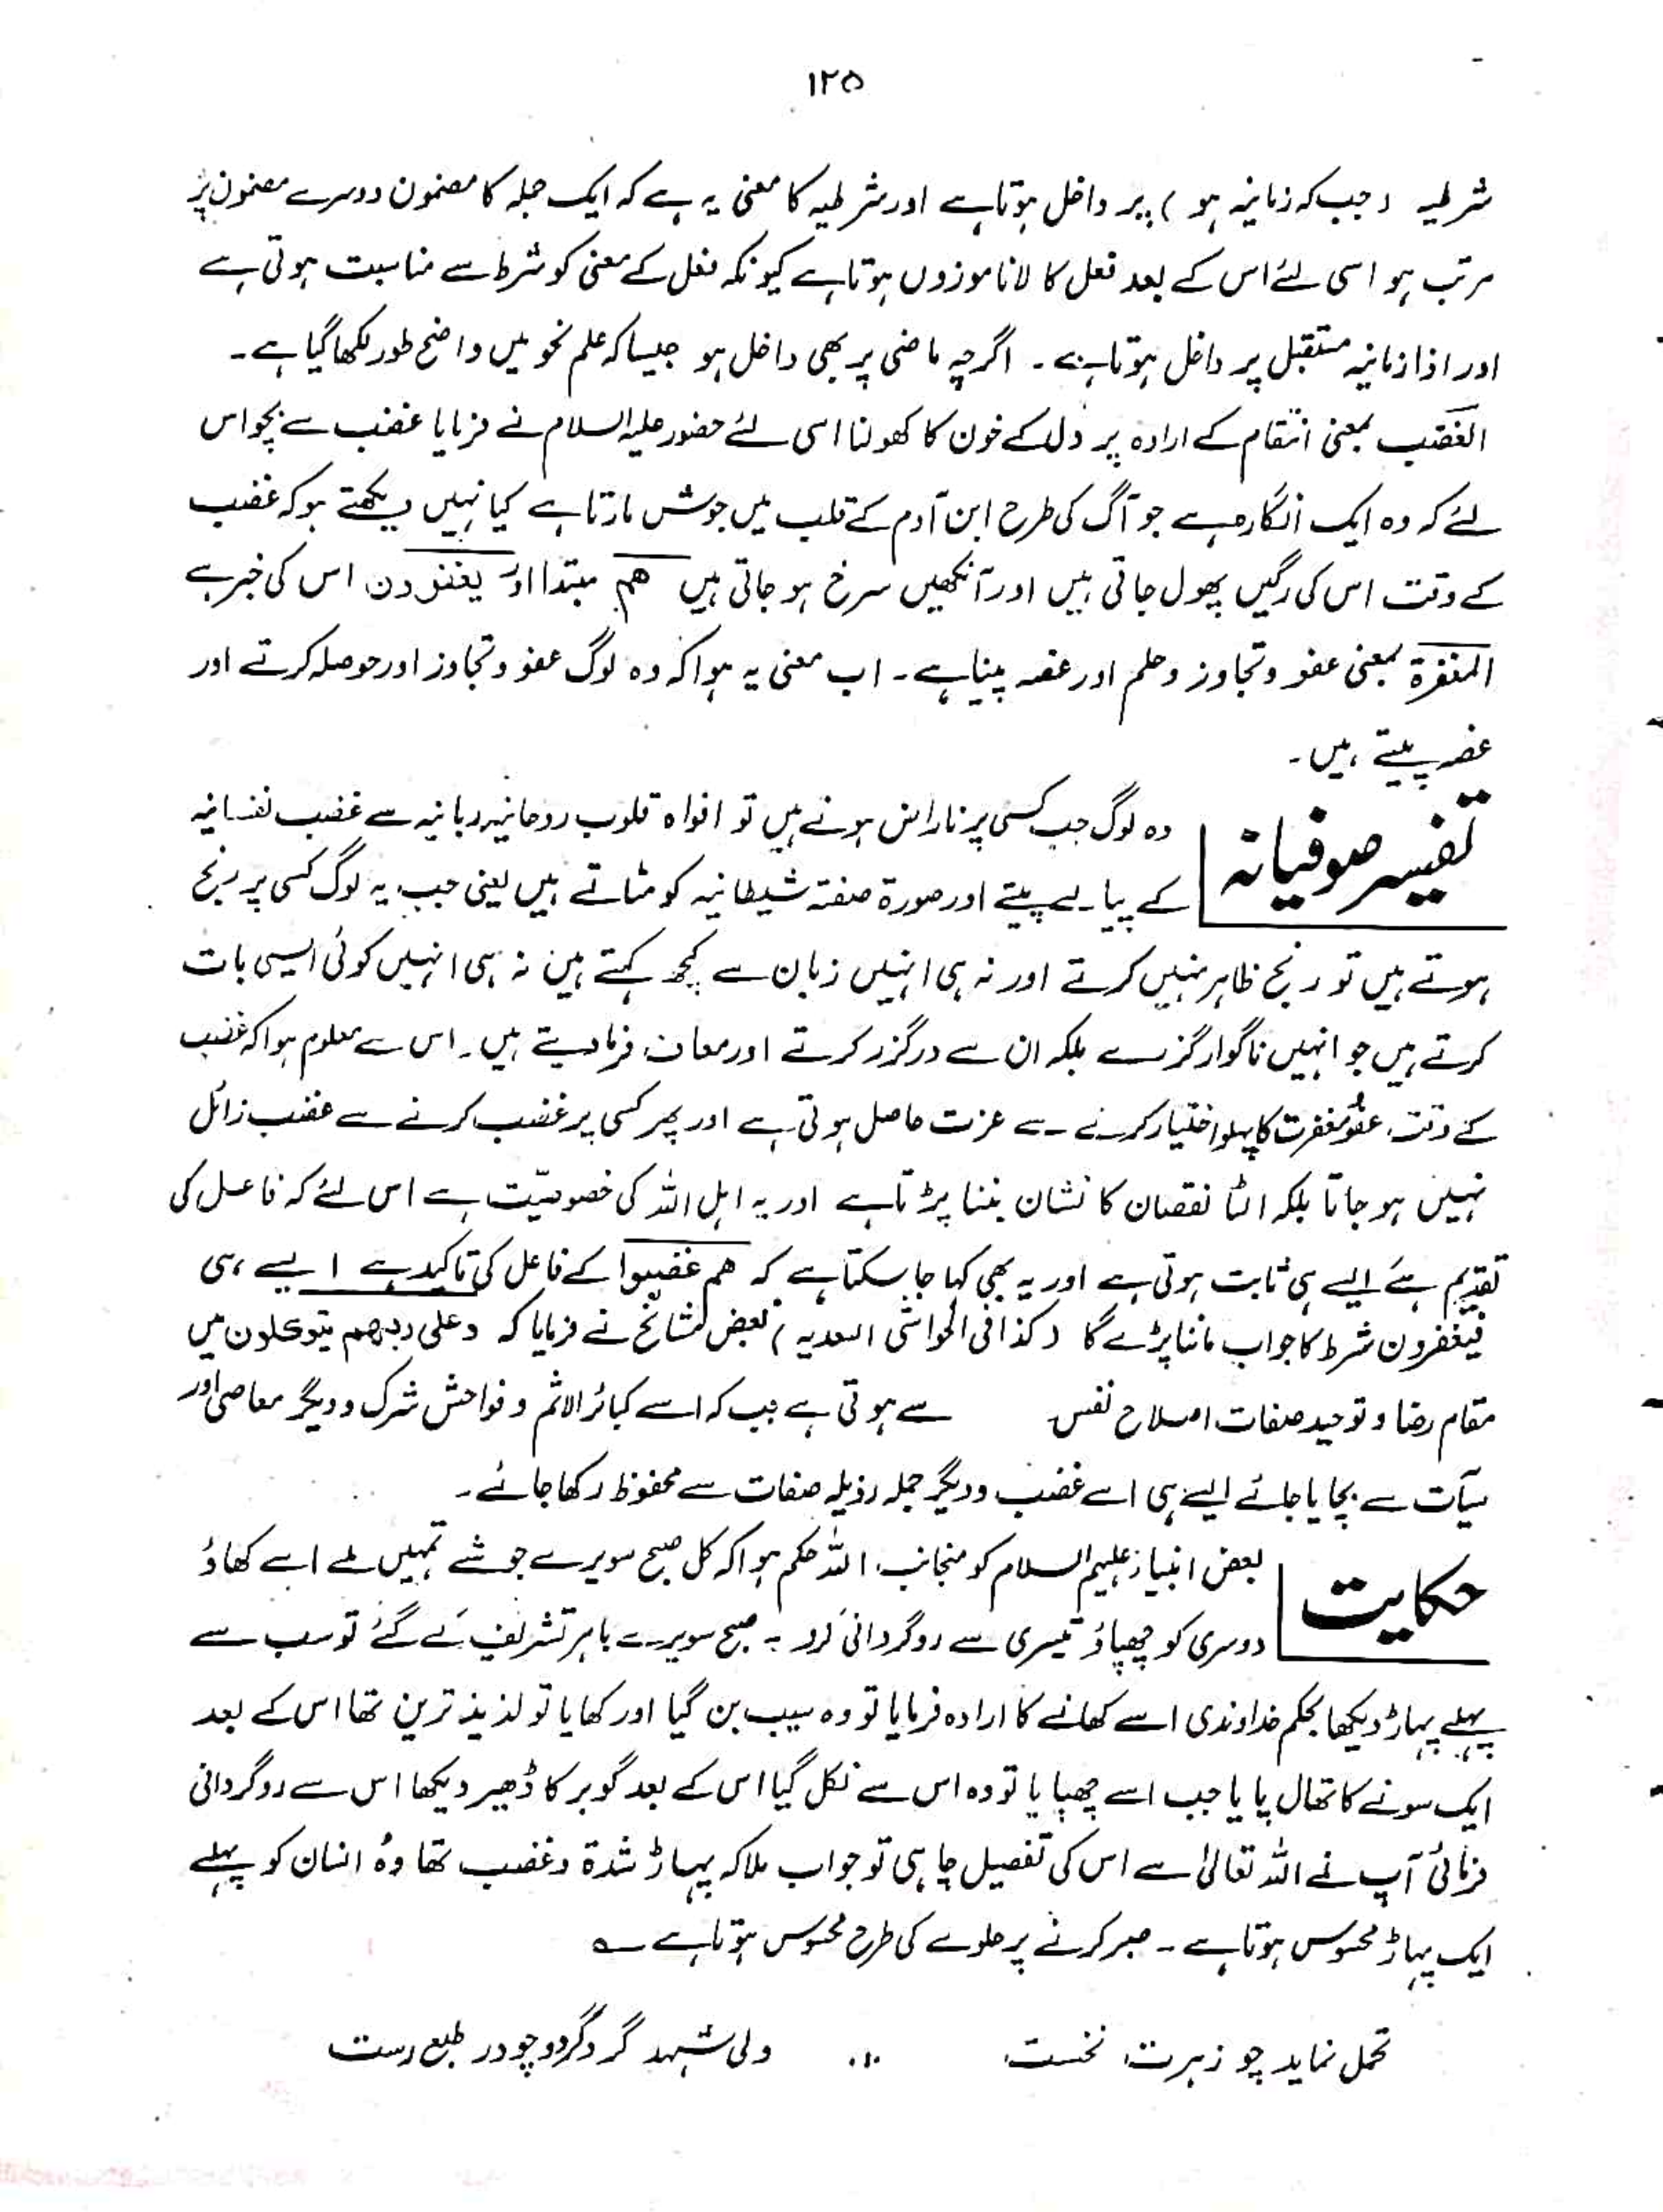 ۱۲۵
شرطیہ (جب کہ زمانیہ ہو) پر داخل ہوتا ہے اور شرطیہ کا معنی یہ ہے کہ ایک جملہ کا مضمون دوسرے مضمون پر
مرتب ہو اسی لئے اس کے بعد فعل کا لانا موزوں ہوتا ہے کیونکہ فعل کے معنی کو شرط سے مناسبت ہوتی ہے
اور اذا زمانیہ مستقبل پر داخل ہوتا ہے۔ اگرچہ ماضی پر بھی داخل ہو جیسا کہ علم نحو میں واضح طور لکھا گیا ہے۔
الغضب بمعنی انتقام کے ارادہ پر دل کے خون کا کھولنا اسی لئے حضور علیہ السلام نے فرمایا غضب سے بچو اس
لئے کہ وہ ایک انگارہ ہے جو آگ کی طرح ابن آدم کے قلب میں جوش مارتا ہے کیا نہیں دیکھتے ہو کہ غضب
کے وقت اس کی رگیں پھول جاتی ہیں اور آنکھیں سرخ ہو جاتی ہیں ھم مبتدا اور یغفرون اس کی خبر ہے
المغفرۃ بمعنی عفو و تجاوز و حلم اور غصہ پینا ہے۔ اب معنی یہ ہوا کہ وہ لوگ عفو و تجاوز اور حوصلہ کرتے اور
غصہ پیتے ہیں۔
تفسیر صوفیانہ
وہ لوگ جب کسی پر ناراض ہوتے ہیں تو افواہ قلوب روحانیہ ربانیہ سے غضب نفسانیہ
کے پیالے پیتے اور صورۃ صفتہ شیطانیہ کو مٹاتے ہیں یعنی جب یہ لوگ کسی پر رنج
ہوتے ہیں تو رنج ظاہر نہیں کرتے اور نہ ہی انہیں زبان سے کچھ کہتے ہیں نہ ہی انہیں کوئی ایسی بات
کرتے ہیں جو انہیں ناگوار گزرے بلکہ ان سے درگزر کرتے اور معاف فرما دیتے ہیں۔ اس سے معلوم ہوا کہ غضب
کے وقت عفو و مغفرت کا پہلو اختیار کرنے سے عزت حاصل ہوتی ہے اور پھر کسی پر غضب کرنے سے غضب زائل
نہیں ہو جاتا بلکہ الٹا نقصان کا نشان بننا پڑتا ہے اور یہ اہل اللہ کی خصوصیّت ہے اس لئے کہ فاعل کی
تقدیم ہے ایسے ہی ثابت ہوتی ہے اور یہ بھی کہا جا سکتا ہے کہ ھم غضبوا کے فاعل کی تاکید ہے ایسے ہی
فیغفرون شرط کا جواب ماننا پڑے گا (کذا فی الحواشی السعدیہ) بعض مشائخ نے فرمایا کہ وعلی ربھم یتوکلون میں
مقام رضا و توحید صفات اصلاح نفس سے ہوتی ہے جب کہ اسے کبائر الاثم و فواحش شرک و دیگر معاصی اور
سیّآت سے بچایا جائے ایسے ہی اسے غضب و دیگر جملہ رذیلہ صفات سے محفوظ رکھا جائے۔
حکایت
بعض انبیاء علیہم السلام کو منجانب اللہ حکم ہوا کہ کل صبح سویرے جو شے تمہیں ملے اسے کھاؤ
دوسری کو چھپاؤ تیسری سے روگردانی کرو۔ صبح سویرے باہر تشریف لے گئے تو سب سے
پہلے پہاڑ دیکھا بحکم خداوندی اسے کھانے کا ارادہ فرمایا تو وہ سیب بن گیا اور کھایا تو لذیذ ترین تھا اس کے بعد
ایک سونے کا تھال پایا جب اسے چھپایا تو وہ اس سے نکل گیا اس کے بعد گوبر کا ڈھیر دیکھا اس سے روگردانی
فرمائی آپ نے اللہ تعالیٰ سے اس کی تفصیل چاہی تو جواب ملا کہ پہاڑ شدۃ و غضب تھا وہ انسان کو پہلے
ایک پہاڑ محسوس ہوتا ہے۔ صبر کرنے پر حلوے کی طرح محسوس ہوتا ہے ؎
تحمل نماید چو زہرت نخست ولی شہد گردد چو در طبع رست